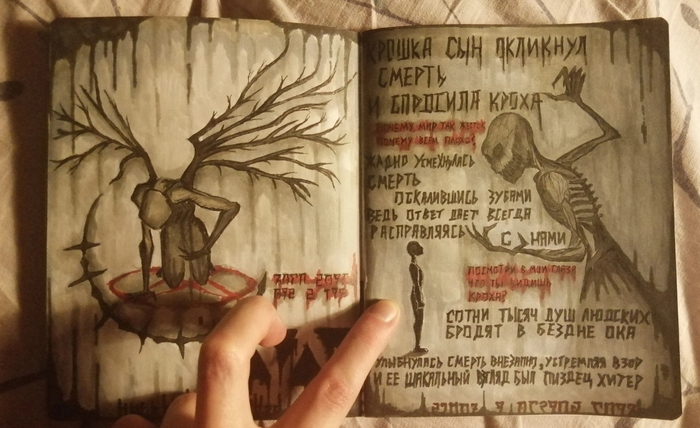 КРОШКА СЫН ОКЛИКНУЛ
СМЕРТЬ
И СПРОСИЛА КРОХА
ПОЧЕМУ МИР ТАК ЖЕСТОК
ПОЧЕМУ ВСЕМ ПЛОХО?
ЖАДНО УСМЕХНУЛАСЬ
СМЕРТЬ
ОСКАЛИВШИСЬ ЗУБАМИ
ВЕДЬ ОТВЕТ ДАЕТ ВСЕГДА
РАСПРАВЛЯЯСЬ С НАМИ
ПОСМОТРИ В МОИ ГЛАЗА
ЧТО ТЫ ВИДИШЬ
КРОХА?
СОТНИ ТЫСЯЧ ДУШ ЛЮДСКИХ
БРОДЯТ В БЕЗДНЕ ОКА
УЛЫБНУЛАСЬ СМЕРТЬ ВНЕЗАПНО, УСТРЕМЛЯЯ ВЗОР
И ЕЕ ШАКАЛЬНЫЙ ВЗГЛЯД БЫЛ ПИЗДЕЦ ХИТЕР